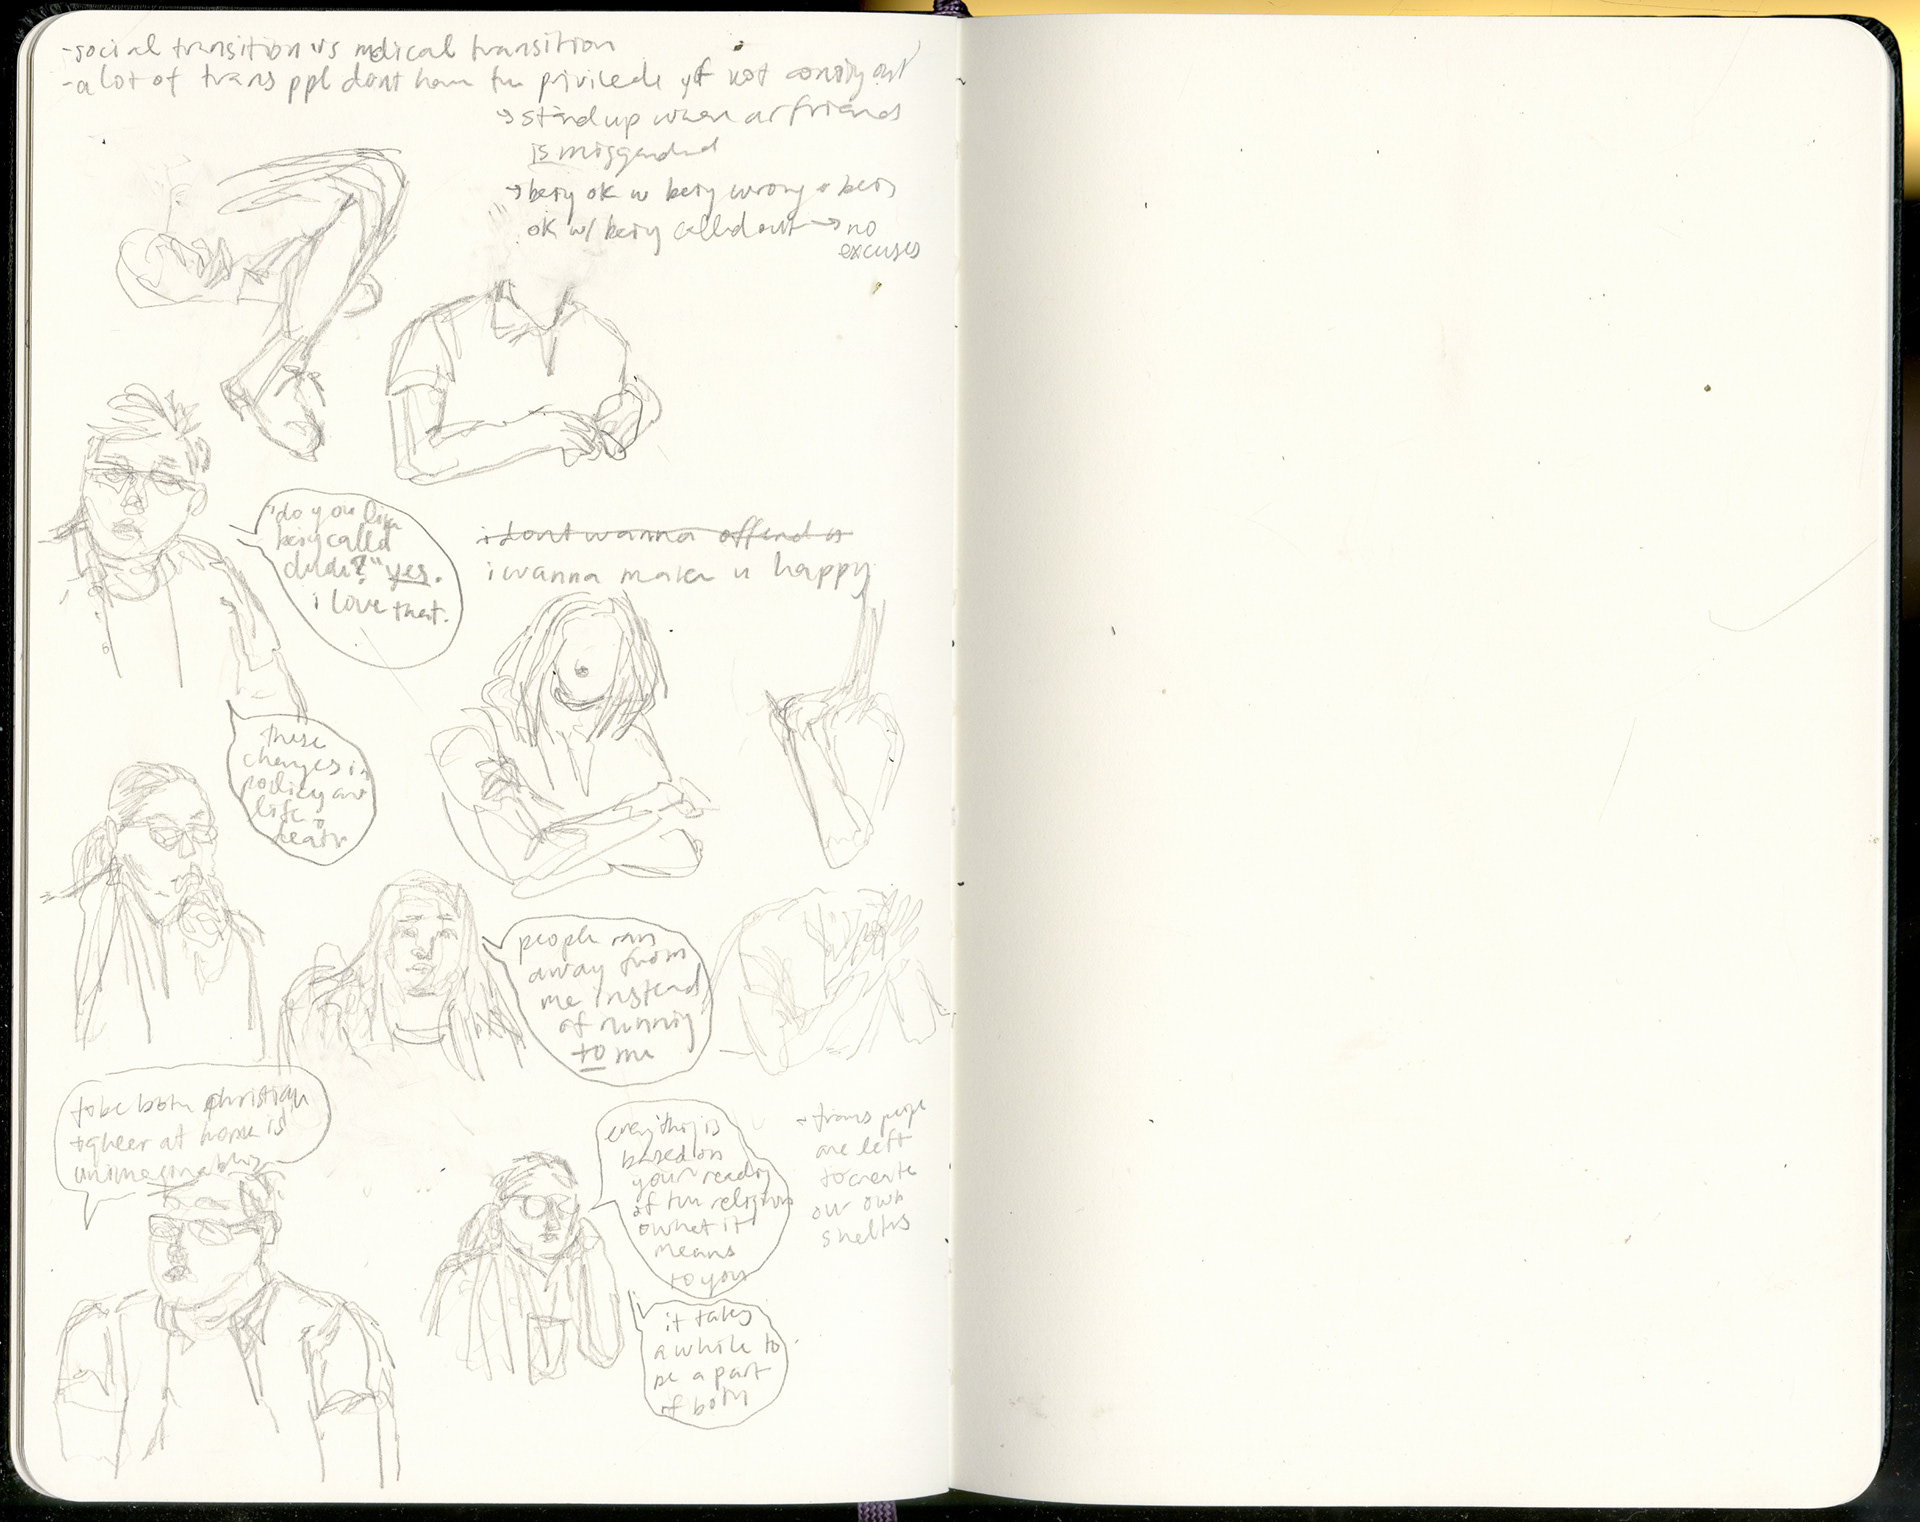 -social transition vs medical transition
-a lot of trans ppl dont have the priviledge of not coming out
→ stand up when ur friends
is misgendered
→ being ok w being wrong + being
ok w/ being called out → no
excuses
"do you like
being called
dude?" yes.
i love that.
i dont wanna offend u
i wanna make u happy
these
changes in
policy are
life +
death
people ran
away from
me instead
of running
to me
to be both christian
+ queer at home is
everything is
based on
your reading
of the religion
+ what it
means
to you
- trans people
are left
to create
our own
shelters
it takes
a while to
be a part
of both